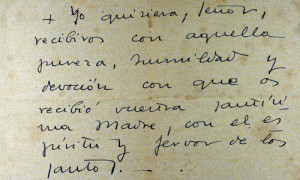 + Yo quisiera, Señor,
recibiros con aquella
pureza, humildad y
devoción con que os
recibió vuestra santísi
ma Madre, con el es
píritu y fervor de los
santos. -